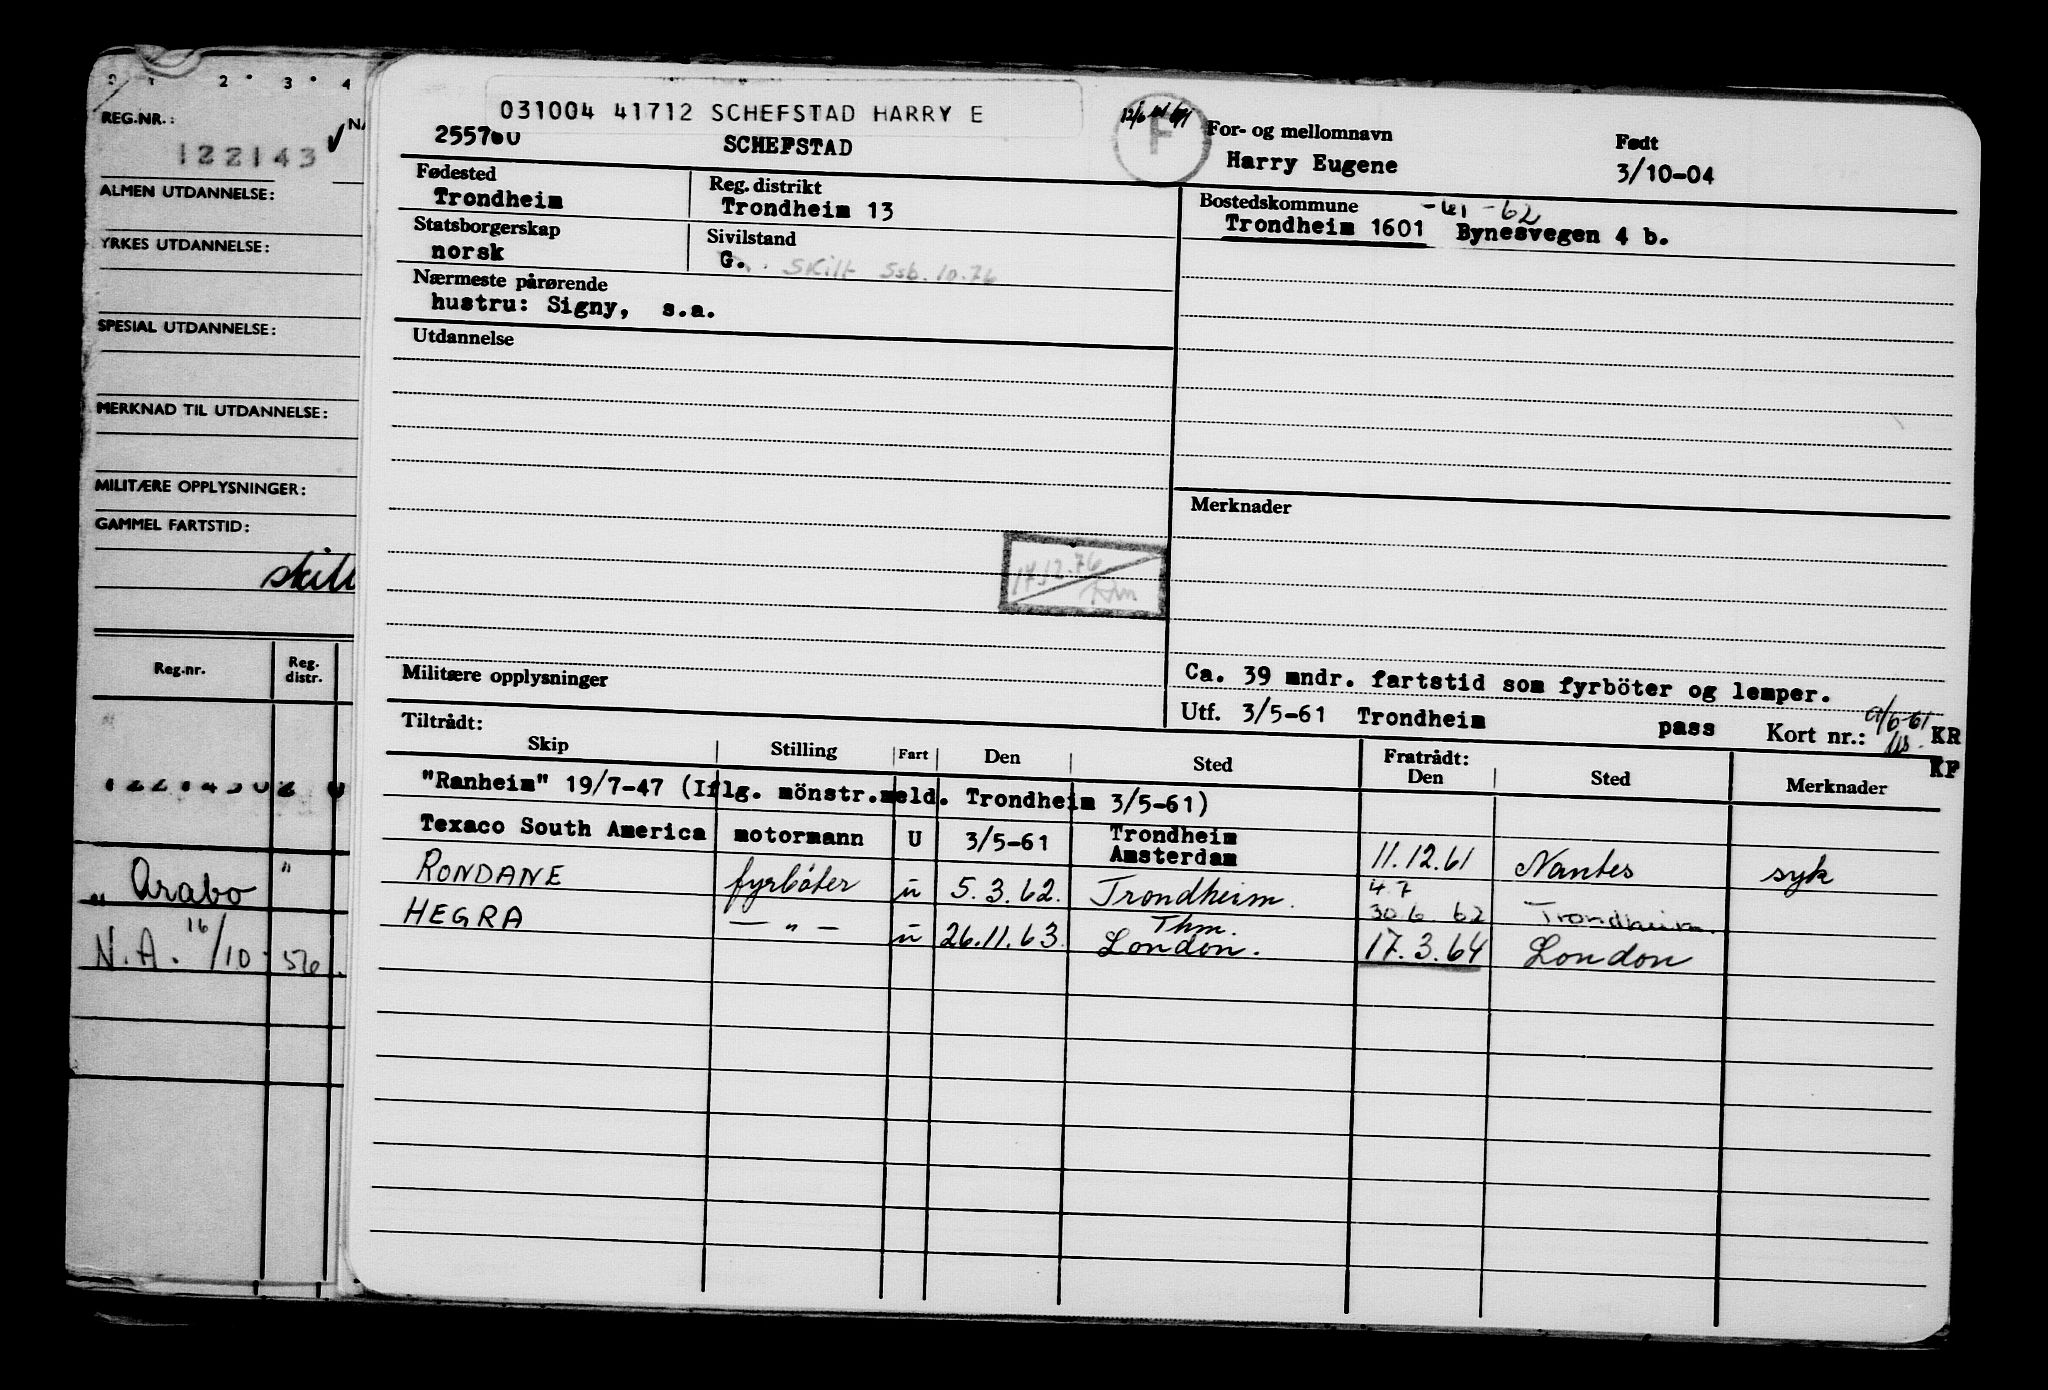 0 1 2 3 4
REG.NR.:
122143
ALMEN UTDANNELSE:
YRKES UTDANNELSE:
SPESIAL UTDANNELSE:
MERKNAD TIL UTDANNELSE:
MILITÆRE OPPLYSNINGER:
GAMMEL FARTSTID:
Reg.nr. Reg. distr.
" Arabo "
N.A. 16/10 - 56
031004 41712 SCHEFSTAD HARRY E
SCHEFSTAD
F
For- og mellomnavn
Harry Eugene
Født
3/10-04
Fødested
Trondheim
Reg. distrikt
Trondheim 13
Bostedskommune -61 -62
Trondheim 1601 Bynesvegen 4 b.
Statsborgerskap
norsk
Sivilstand
G. Skilt Ssb. 10.76
Nærmeste pårørende
hustru: Signy, s.a.
Utdannelse
Merknader
17.12.76
Militære opplysninger
Ca. 39 mndr. fartstid som fyrböter og lemper.
Utf. 3/5-61 Trondheim pass Kort nr.: KR
KF
Tiltrådt:
Skip Stilling Fart Den Sted Fratrådt: Den Sted Merknader
"Ranheim" 19/7-47 (Iflg. mönstr.meld. Trondheim 3/5-61)
Texaco South America motormann U 3/5-61 Trondheim Amsterdam 11.12.61 Nantes syk
RONDANE fyrbøter u 5.3.62. Trondheim. 4.7 30.6.62 Trondheim.
HEGRA — " — u 26.11.63. Thm. London. 17.3.64 London